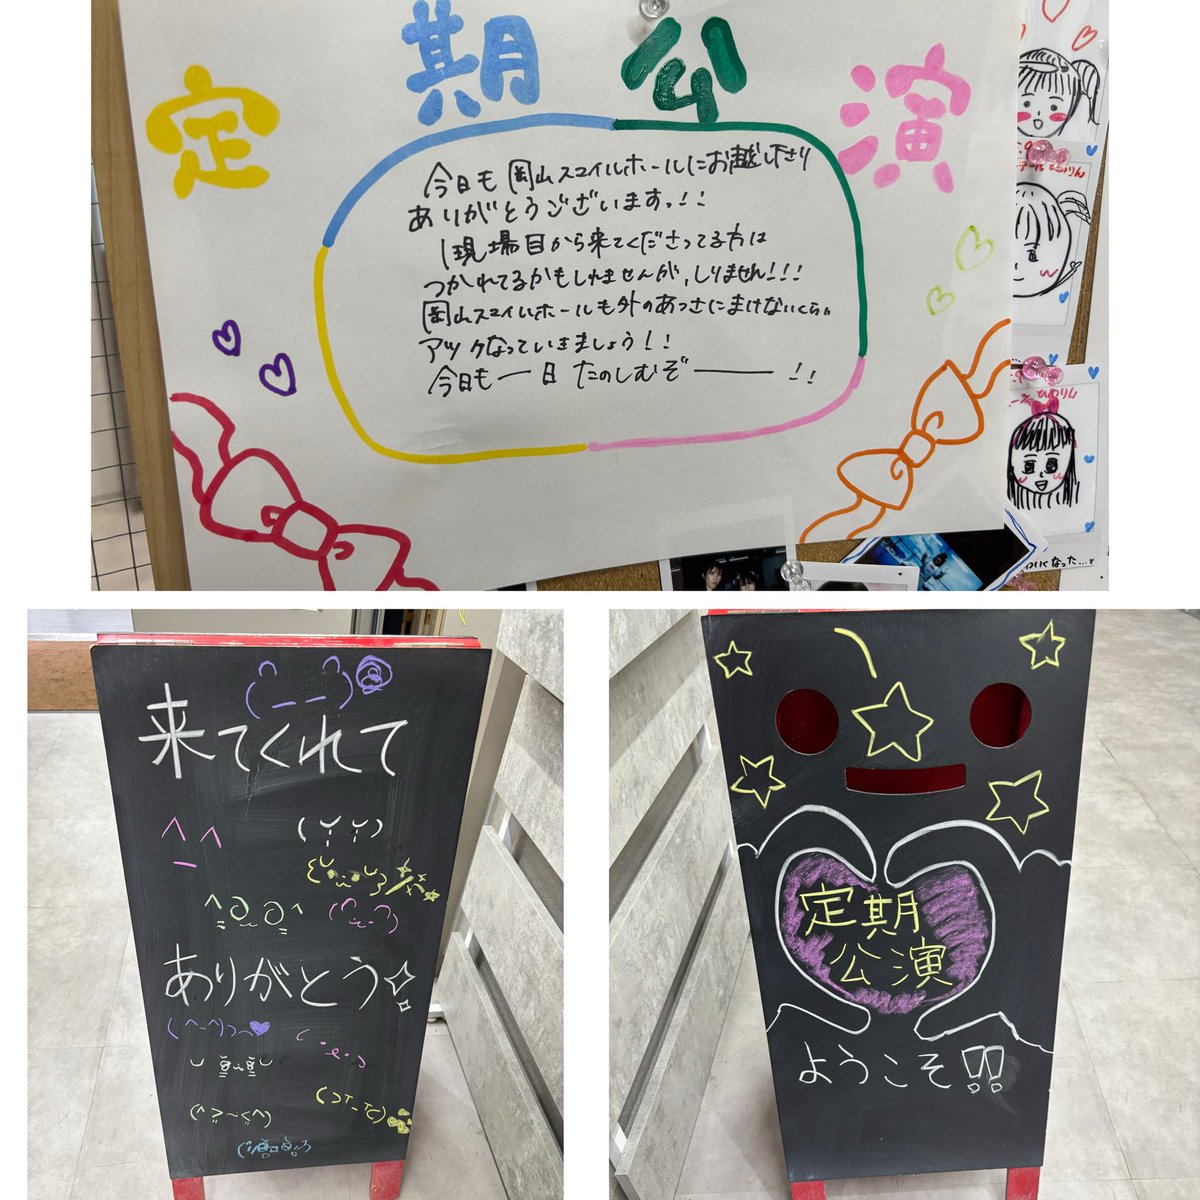 定期公演
今日も岡山スマイルホールにお越し下さり
ありがとうございますっ!!
1現場目から来てくださってる方は
つかれてるかもしれませんが、しりません!!!
岡山スマイルホールも外のあつさにまけないくらい
アツクなっていきましょう!!
今日も一日たのしむぞ――!!
ひめりん
来てくれて
ありがとう
定期
公演
ようこそ!!